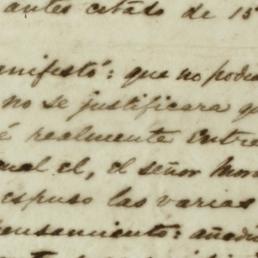 antes citado de 15
manifestó: que no podia
no se justificara q
é realmente entre
cual el, el señor Mon
espuso las varias
pensamiento: añadi